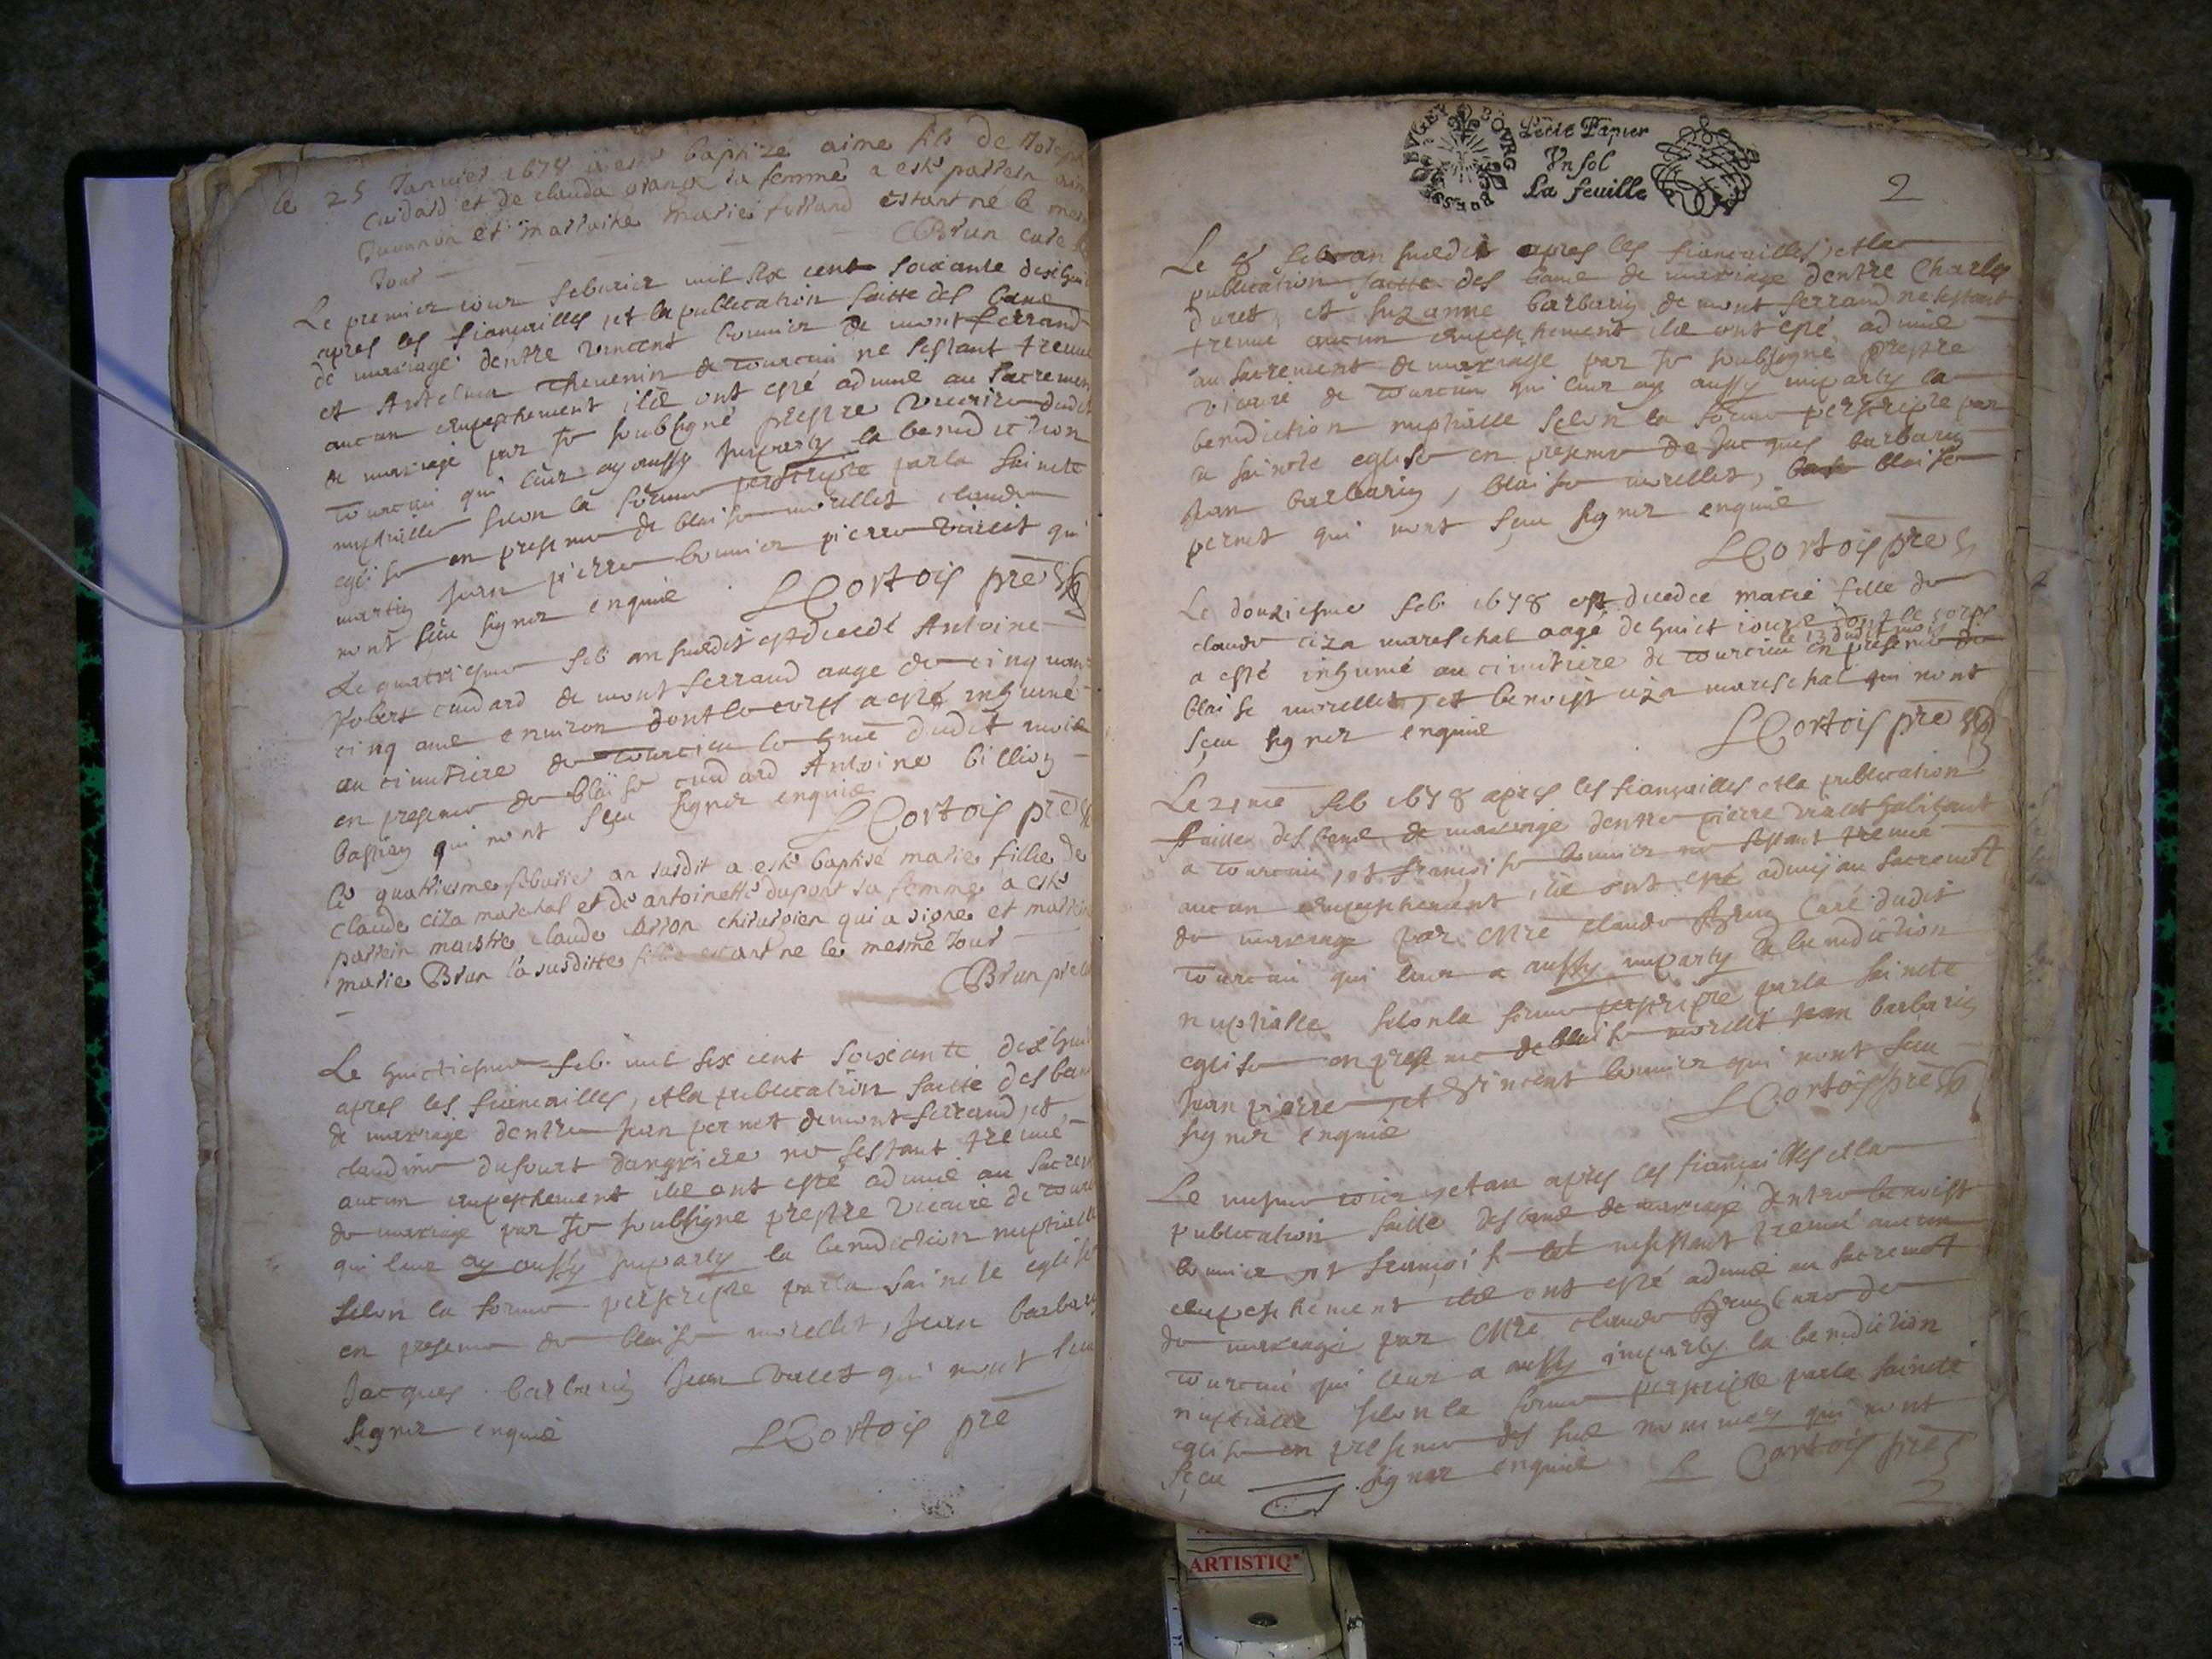 le 25 Janvier 1678 a esté baptizé aime fils de Joseph
Cudard et de clauda grange sa femme a esté parrein
et marraine marie estant né le mesme
Jour
Brun curé
Le premier iour feburier mil six cent soixante dixhuit
apres les fiancailles, et la publication faitte des bans
de mariage dentre vincent bonnier de mont ferrand
et Antelma thevenin de tourcin ne sestant treuué
aucun empeschement ils ont esté admis au Sacrement
de mariage par Je soubsigné prestre vicaire dudit
tourcin qui leur ay aussy imparty la benediction
nuptialle selon la forme perscripte par la saincte
eglise en presence de blaise morellet claude
martin Jean pierre bonnier pierre violet qui
nont sceu signer enquis
L Cortois pre
Le quatriesme feb. an susdit est decedé Antoine
Robert cudard de mont ferrand aage de cinquante
cinq ans environ dont le corps a esté inhumé
au cimitiere de tourcin le 5me dudit mois
en presence de blaise cudard Antoine billion
bastien qui nont sceu signer enquis
L Cortois pre
le quatriesme feburier an susdit a esté baptisé marie fillie de
claude ciza marechal et de antoinette dupont sa femme a esté
parrein maistre claude arron chirurgien qui a signé et marreine
marie Brun la susditte fillie estant ne le mesme Jour
Brun pre
Le huictiesme feb. mil six cent soixante dixhuit
apres les fiancailles, et la publication faitte des bans
de mariage dentre Jean pernet de mont ferrand, et
claudine dufourt dangriere ne sestant treuué
aucun empeschement ils ont esté admis au Sacrement
de mariage par Je soubsigné prestre vicaire de tourcin
qui leur ay aussy imparty la benediction nuptialle
selon la forme perscripte par la saincte eglise
en presence de blaise morellet, Jean barbarin
Jacques barbarin Jean violet qui nont sceu
signer enquis
L Cortois pre
BVGEY BOVRG BRESSE
Petit Papier
Vn sol
La feuille
2
Le 8 feb. an susdit apres les fiancailles, et la
publication faitte des bans de mariage dentre Charles
duret, et suzanne barbarin de mont ferrand ne sestant
treuue aucun empeschement ils ont esté admis
au sacrement de mariage par Je soubsigné prestre
vicaire de tourcin qui leur ay aussy imparty la
benediction nuptialle selon la forme perscripte par
la saincte eglise en presence de Jacques barbarin
Jean barbarin, blaise morellet, blaise
pernet qui nont sceu signer enquis
L Cortois pre
Le douziesme feb. 1678 est decedée marie fille de
claude ciza mareschal aagé de huict iours dont le corps
a esté inhumé au cimitiere de tourcin le 13 dudit mois en presence de
blaise morellet, et benoist ciza mareschal qui nont
sceu signer enquis
L Cortois pre
Le 21me feb 1678 apres les fiancailles et la publication
faitte des bans de mariage dentre pierre violet habitant
a tourcin, et francoise bonnier ne sestant treuué
aucun empeschement, ils ont esté admis au sacrement
de mariage par Mre claude Brun curé dudit
tourcin qui leur a aussy imparty la benediction
nuptialle selon la forme perscripte par la saincte
eglise en presence de blaise morellet Jean barbarin
Jean pierre, et vincent bonnier qui nont sceu
signer enquis
L Cortois pre
Le mesme iour et an apres les fiancailles et la
publication faitte des bans de mariage dentre benoist
bonnier et francoise ne sestant treuué aucun
empeschement ils ont esté admis au sacrement
de mariage par Mre claude Brun curé de
tourcin qui leur a aussy imparty la benediction
nuptialle selon la forme perscripte par la saincte
eglise en presence des sus nommes qui nont
sceu signer enquis
L Cortois pre
2
ARTISTIQ